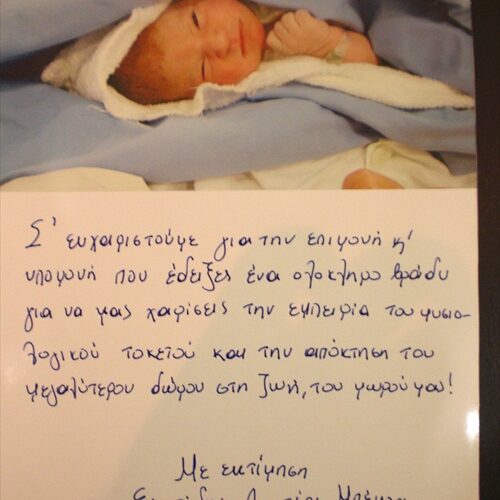 Σ' ευχαριστούμε για την επιμονή κ'
υπομονή που έδειξες ένα ολόκληρο βράδυ
για να μας χαρίσεις την εμπειρία του φυσιο-
λογικού τοκετού και την απόκτηση του
μεγαλύτερου δώρου στη ζωή, του μωρού μου!
Με εκτίμηση